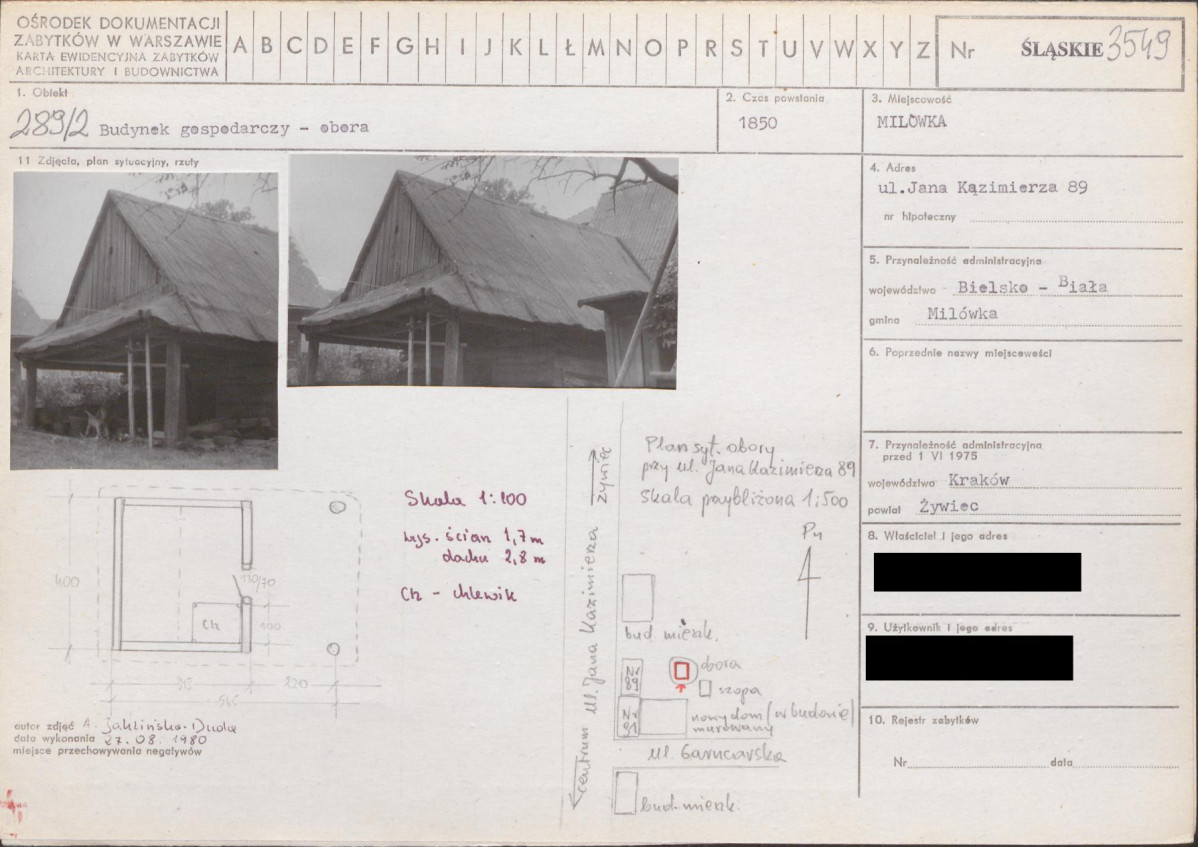 OŚRODEK DOKUMENTACJI
ZABYTKÓW W WARSZAWIE
KARTA EWIDENCYJNA ZABYTKÓW
ARCHITEKTURY I BUDOWNICTWA
A B C D E F G H I J K L Ł M N O P R S T U V W X Y Z
Nr ŚLĄSKIE 3549
1. Obiekt
289/2 Budynek gospodarczy - obora
2. Czas powstania
1850
3. Miejscowość
MILÓWKA
11 Zdjęcia, plan sytuacyjny, rzuty
4. Adres
ul.Jana Kązimierza 89
nr hipoteczny
5. Przynależność administracyjna
województwo Bielsko - Biała
gmina Milówka
6. Poprzednie nazwy miejscowości
7. Przynależność administracyjna
przed 1 VI 1975
województwo Kraków
powiat Żywiec
8. Właściciel i jego adres
9. Użytkownik i jego adres
10. Rejestr zabytków
Nr data
Skala 1:100
wys. ścian 1,7 m
dachu 2,8 m
Ch - chlewik
400
110/70
Ch
100
220
autor zdjęć A. Jaklińska-Duda
data wykonania 27.08.1980
miejsce przechowywania negatywów
Plan syt. obory
przy ul. Jana Kazimierza 89
skala przybliżona 1:500
Pn
żywiec
ul. Jana Kazimierza
centrum
bud. mieszk.
Nr 89
obora
szopa
Nr 91
nowy dom (w budowie)
murowany
ul. Garncarska
bud. mieszk.